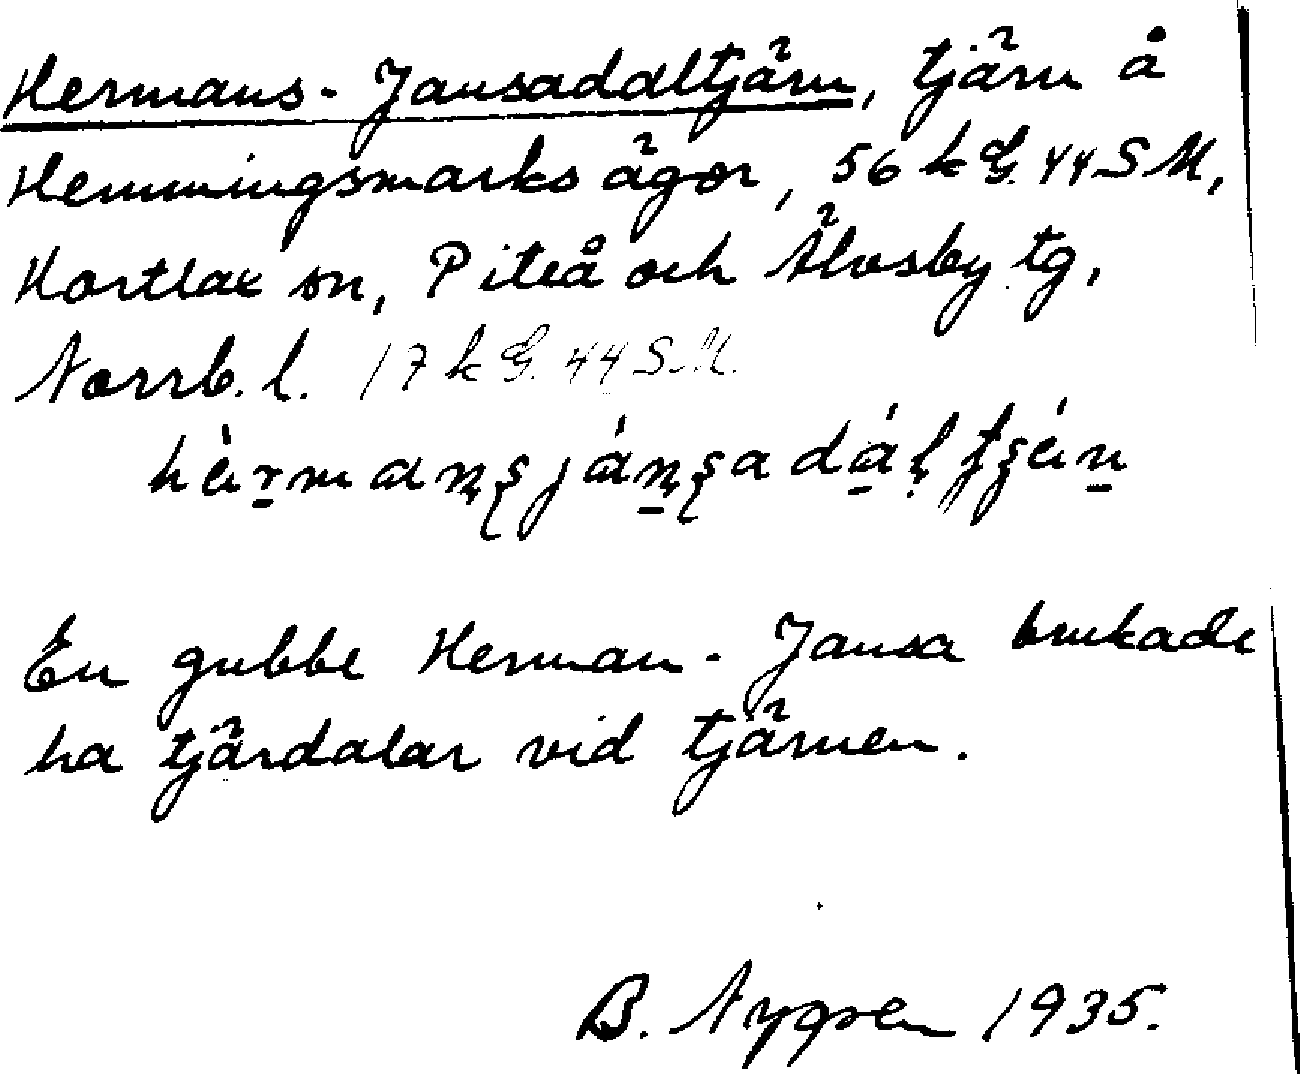 Hermans-Jansadaltjärn, tjärn å
Hemmingsmarks ägor, 56 k G. 44 S M,
Hortlax sn, Piteå och Älvsby tg,
Norrb. l. 17 k G. 44 S.M.
En gubbe Herman-Jansa brukade
ha tjärdalar vid tjärnen.
B. Nygren 1935.